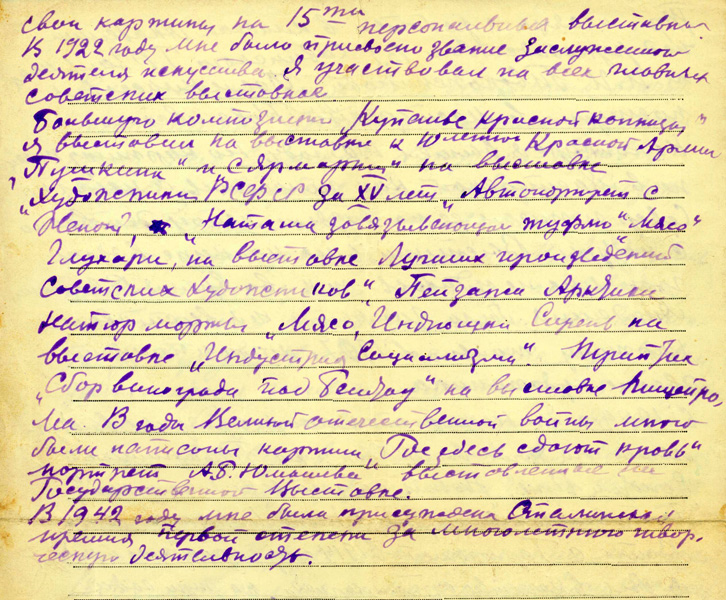 свои картины на 15ти персональных выставках
В 1922 году мне было присвоено звание Заслуженного
деятеля искусства. Я участвовал на всех главных
советских выставках
Большую композицию „Купанье красной конницы"
я выставил на выставке к 10летию Красной Армии
„Пушкина" и с ярмарки" на выставке
„Художники РСФСР за XV лет „Автопортрет с
женой", „Наташа завязывающая туфлю" „Мясо"
Глухари, на выставке Лучших произведений
Советских Художников", Пейзажи Арктики
натюрморты „Мясо, Индюшки Сирень на
выставке „Индустрия Социализма". Триптих
„Сбор винограда под" на выставке Пищепро
ма. В годы Великой отечественной войны много
было написано картин, „Где здесь сдают кровь"
портрет А.Б. Юмашева" выставленные на
Государственной Выставке.
В 1942 году мне была присуждена Сталинская
премия первой степени за многолетнюю твор-
ческую деятельность.